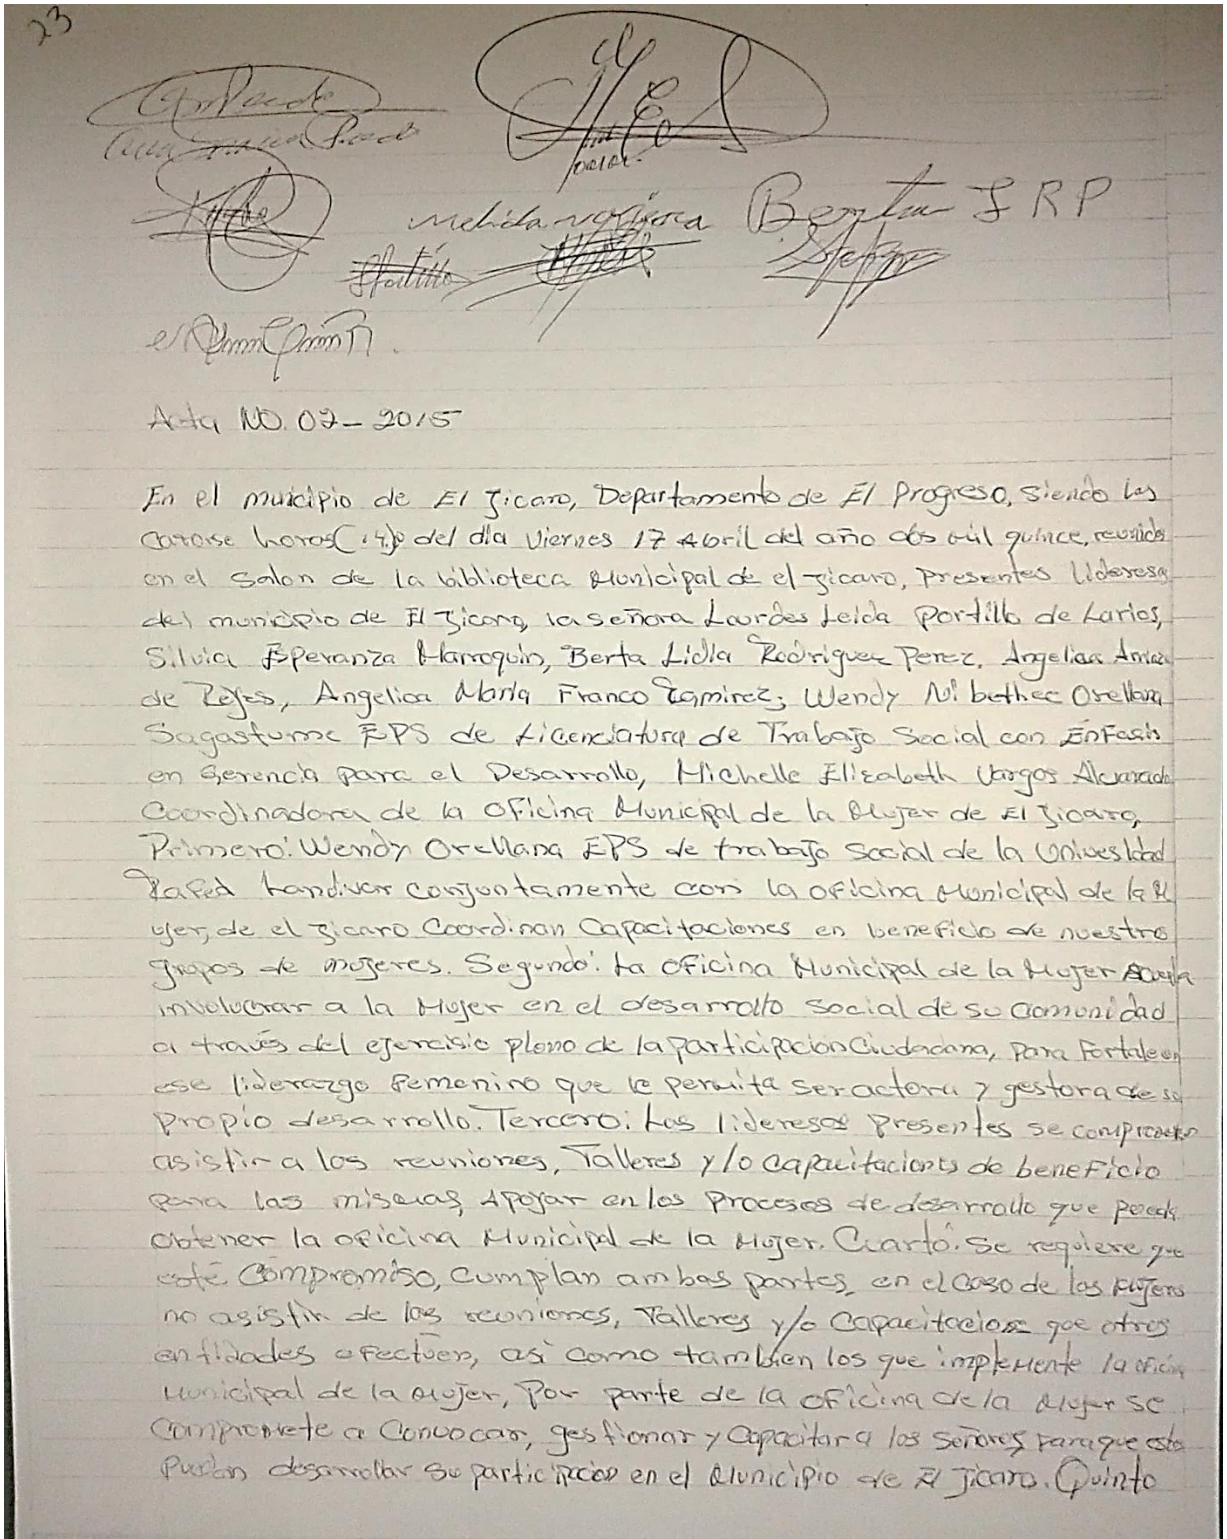 23
Melida
Berta I R P
Acta NO. 02-2015
En el muicipio de El Jicaro, Departamento de El Progreso, siendo las
catorse horas (14) del día Viernes 17 Abril del año dos mil quince, reunidos
en el Salon de la biblioteca Municipal de el jicaro, Presentes lideresas
del municipio de El Jicaro, la señora Lourdes Leida Portillo de Larios,
Silvia Esperanza Marroquin, Berta Lidia Rodriguez Perez, Angelica
de Reyes, Angelica María Franco Ramirez; Wendy Nibethee Orellana
Sagastume EPS de Licenciatura de Trabajo Social con Enfasis
en Gerencia para el Desarrollo, Michelle Elizabeth Vargas Alvarado
Coordinadora de la Oficina Municipal de la Mujer de El Jicaro,
Primero: Wendy Orellana EPS de trabajo Social de la Univesidad
Rafed Landivar conjuntamente con la oficina Municipal de la M
ujer, de el Jicaro Coordinan Capacitaciones en beneficio de nuestro
grupos de mujeres. Segundo: La Oficina Municipal de la Mujer
involucrar a la Mujer en el desarrollo Social de su Comunidad
a través del ejercisio pleno de la participacion Ciudadana, para Fortalecer
ese liderazgo Femenino que le permita ser actora y gestora de su
propio desarrollo. Tercero: Las lideresas Presentes se comprometen
asistir a las reuniones, Talleres y/o capacitaciones de beneficio
para las mismas, Apoyar en los Procesos de desarrollo que pueda
obtener la oficina Municipal de la Mujer. Cuarto: Se requiere que
esté Compromiso, cumplan ambas partes, en el caso de las Mujeres
no asistir de las reuniones, Talleres y/o Capacitacion que otras
entidades efectúen, así como tambien los que implemente la oficina
Municipal de la Mujer, Por parte de la oficina de la Mujer se
Compromete a Convocar, gestionar y Capacitar a las Señoras para que estas
Puedan desarrollar su participacion en el Municipio de El Jicaro. Quinto